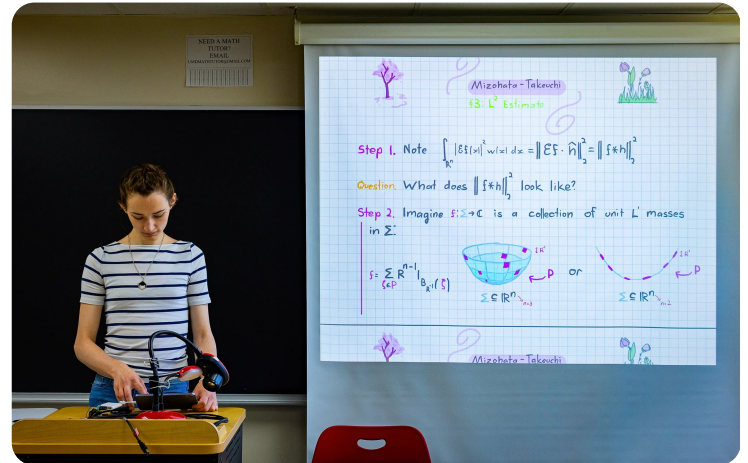 NEED A MATH
TUTOR?
EMAIL
Mizohata-Takeuchi
§3: L² Estimate
Step 1. Note ∫_{ℝⁿ} |Ef(x)|² w(x) dx = ‖Ef · ĥ‖₂² = ‖f*h‖₂²
Question. What does ‖f*h‖₂² look like?
Step 2. Imagine f: Σ→ℂ is a collection of unit L¹ masses
in Σ:
f = Σ_{ζ∈P} R^{n-1} 1_{B_{R⁻¹}(ζ)}
P or P
Σ ⊆ ℝⁿ Σ ⊆ ℝⁿ
Mizohata-Takeuchi